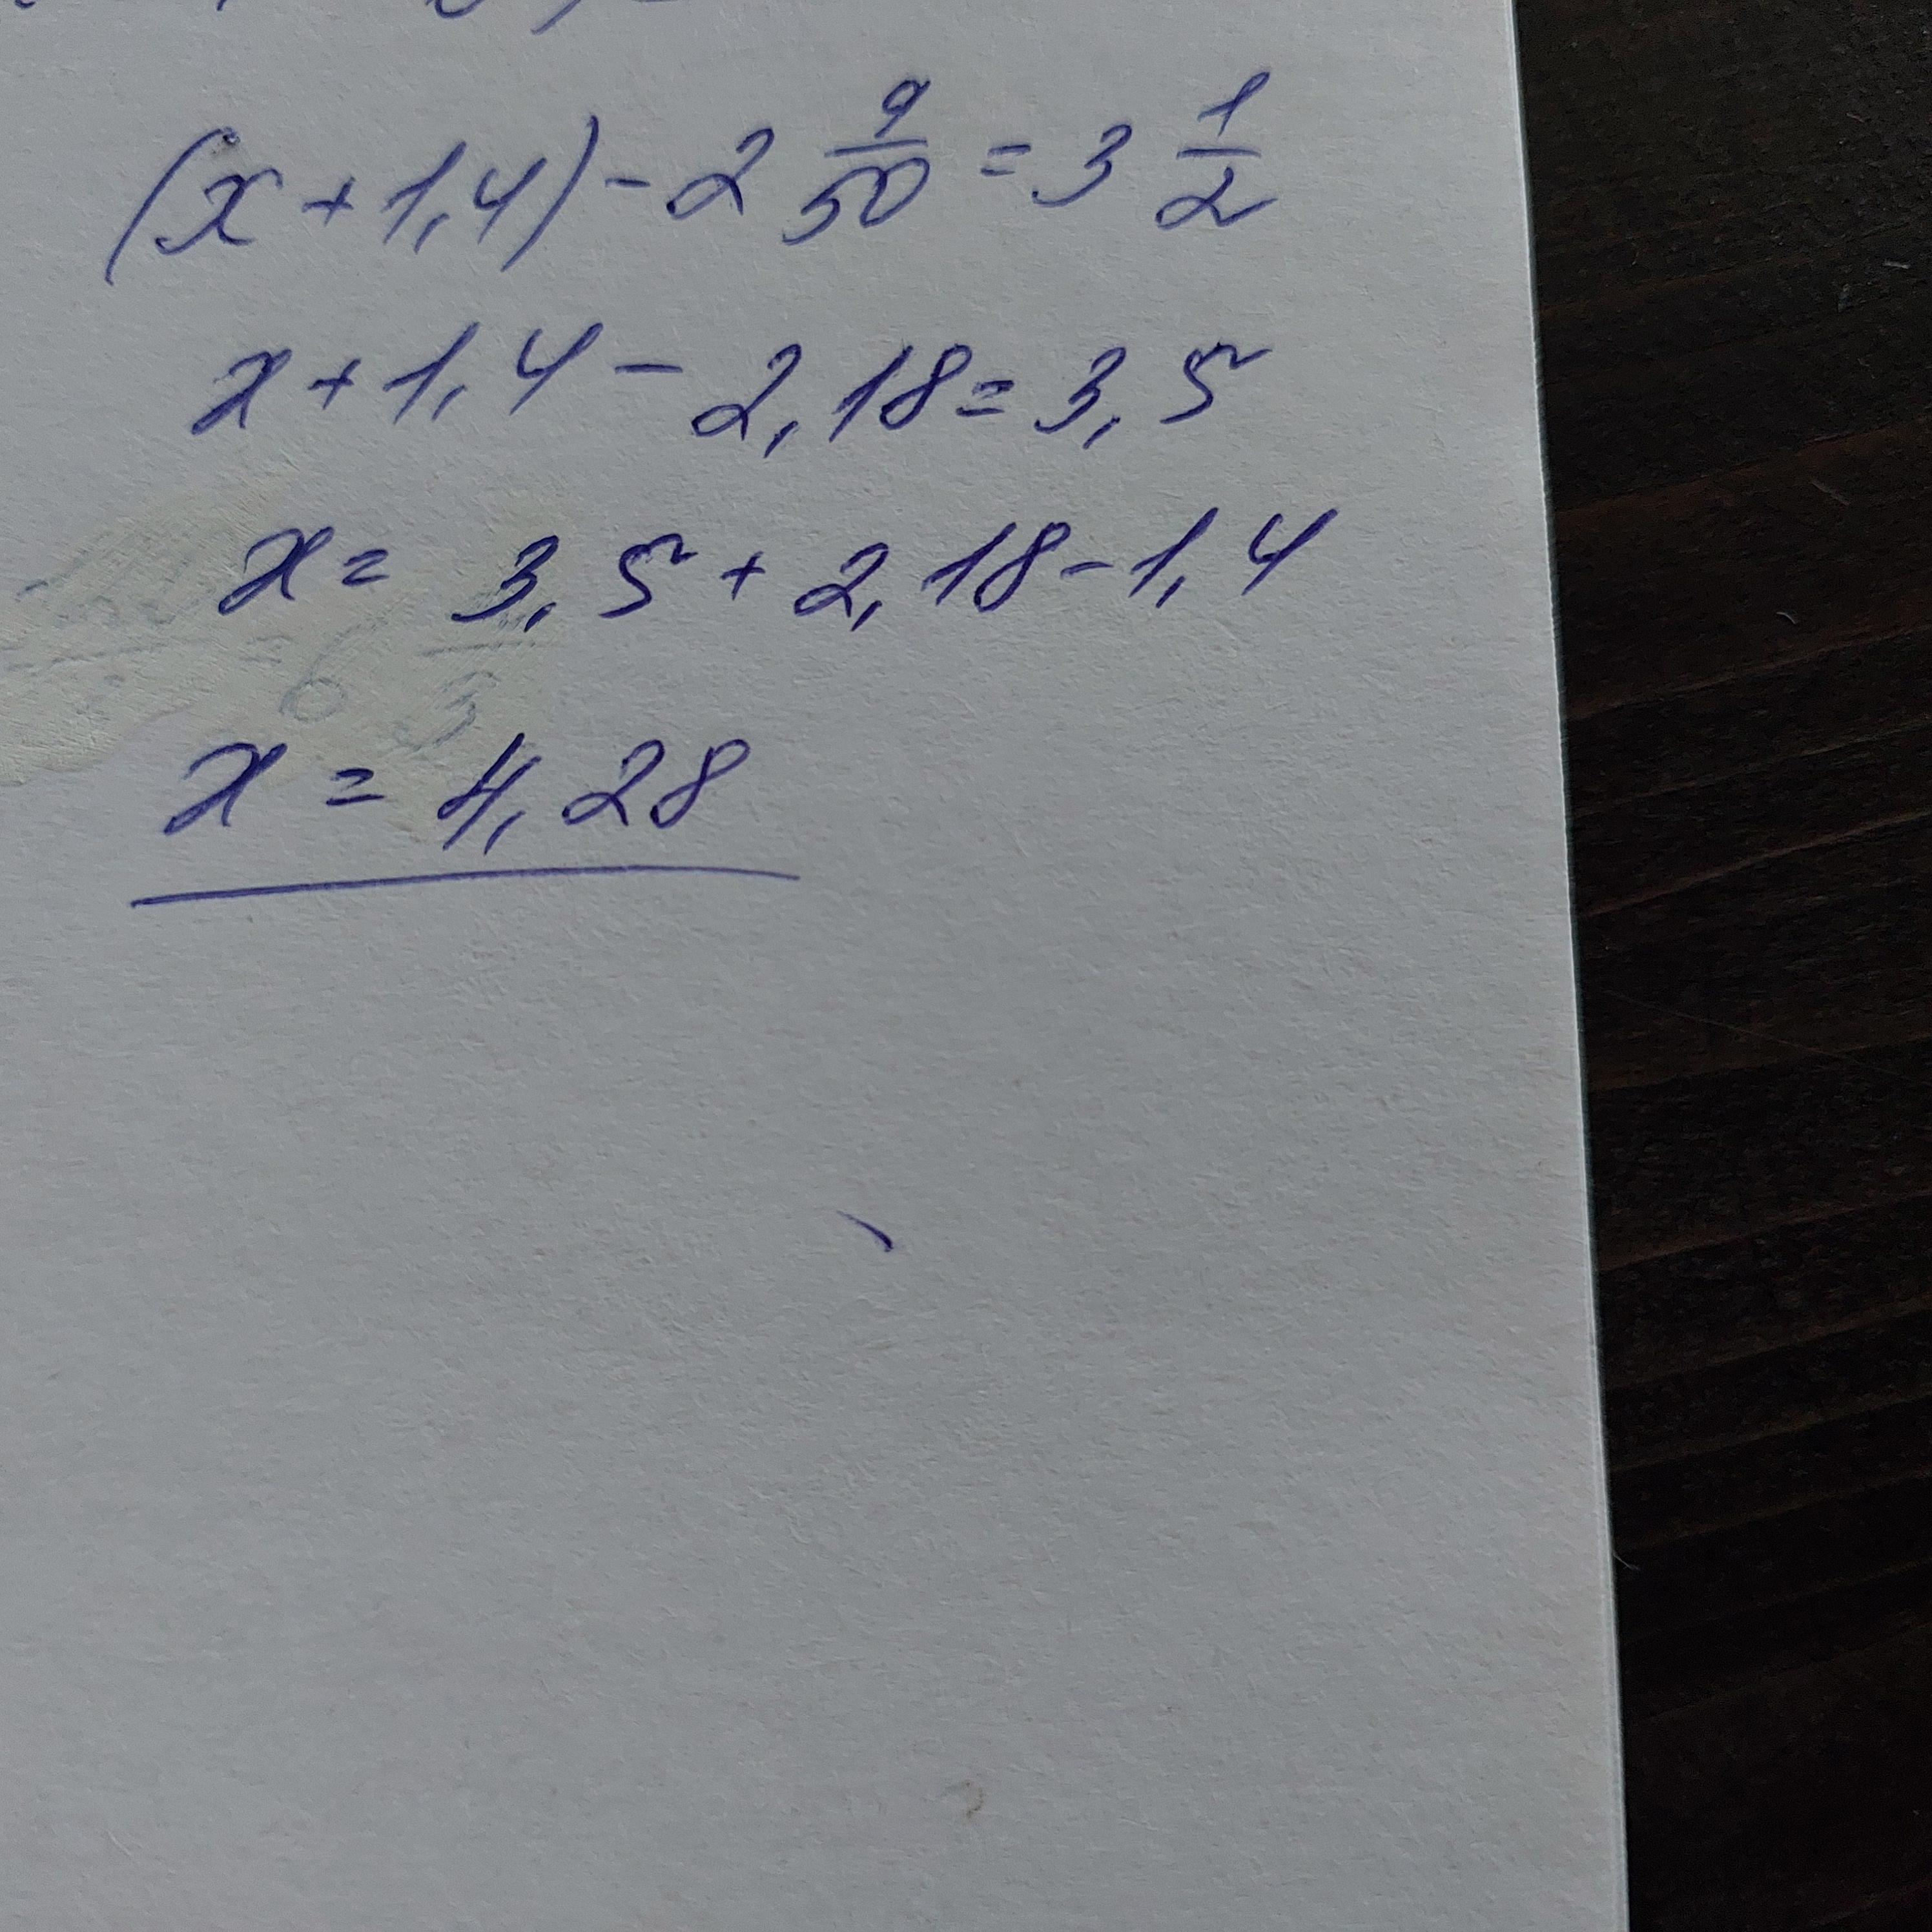 (x + 1,4) - 2 9/50 = 3 1/2
x + 1,4 - 2,18 = 3,5
x = 3,5 + 2,18 - 1,4
x = 4,28